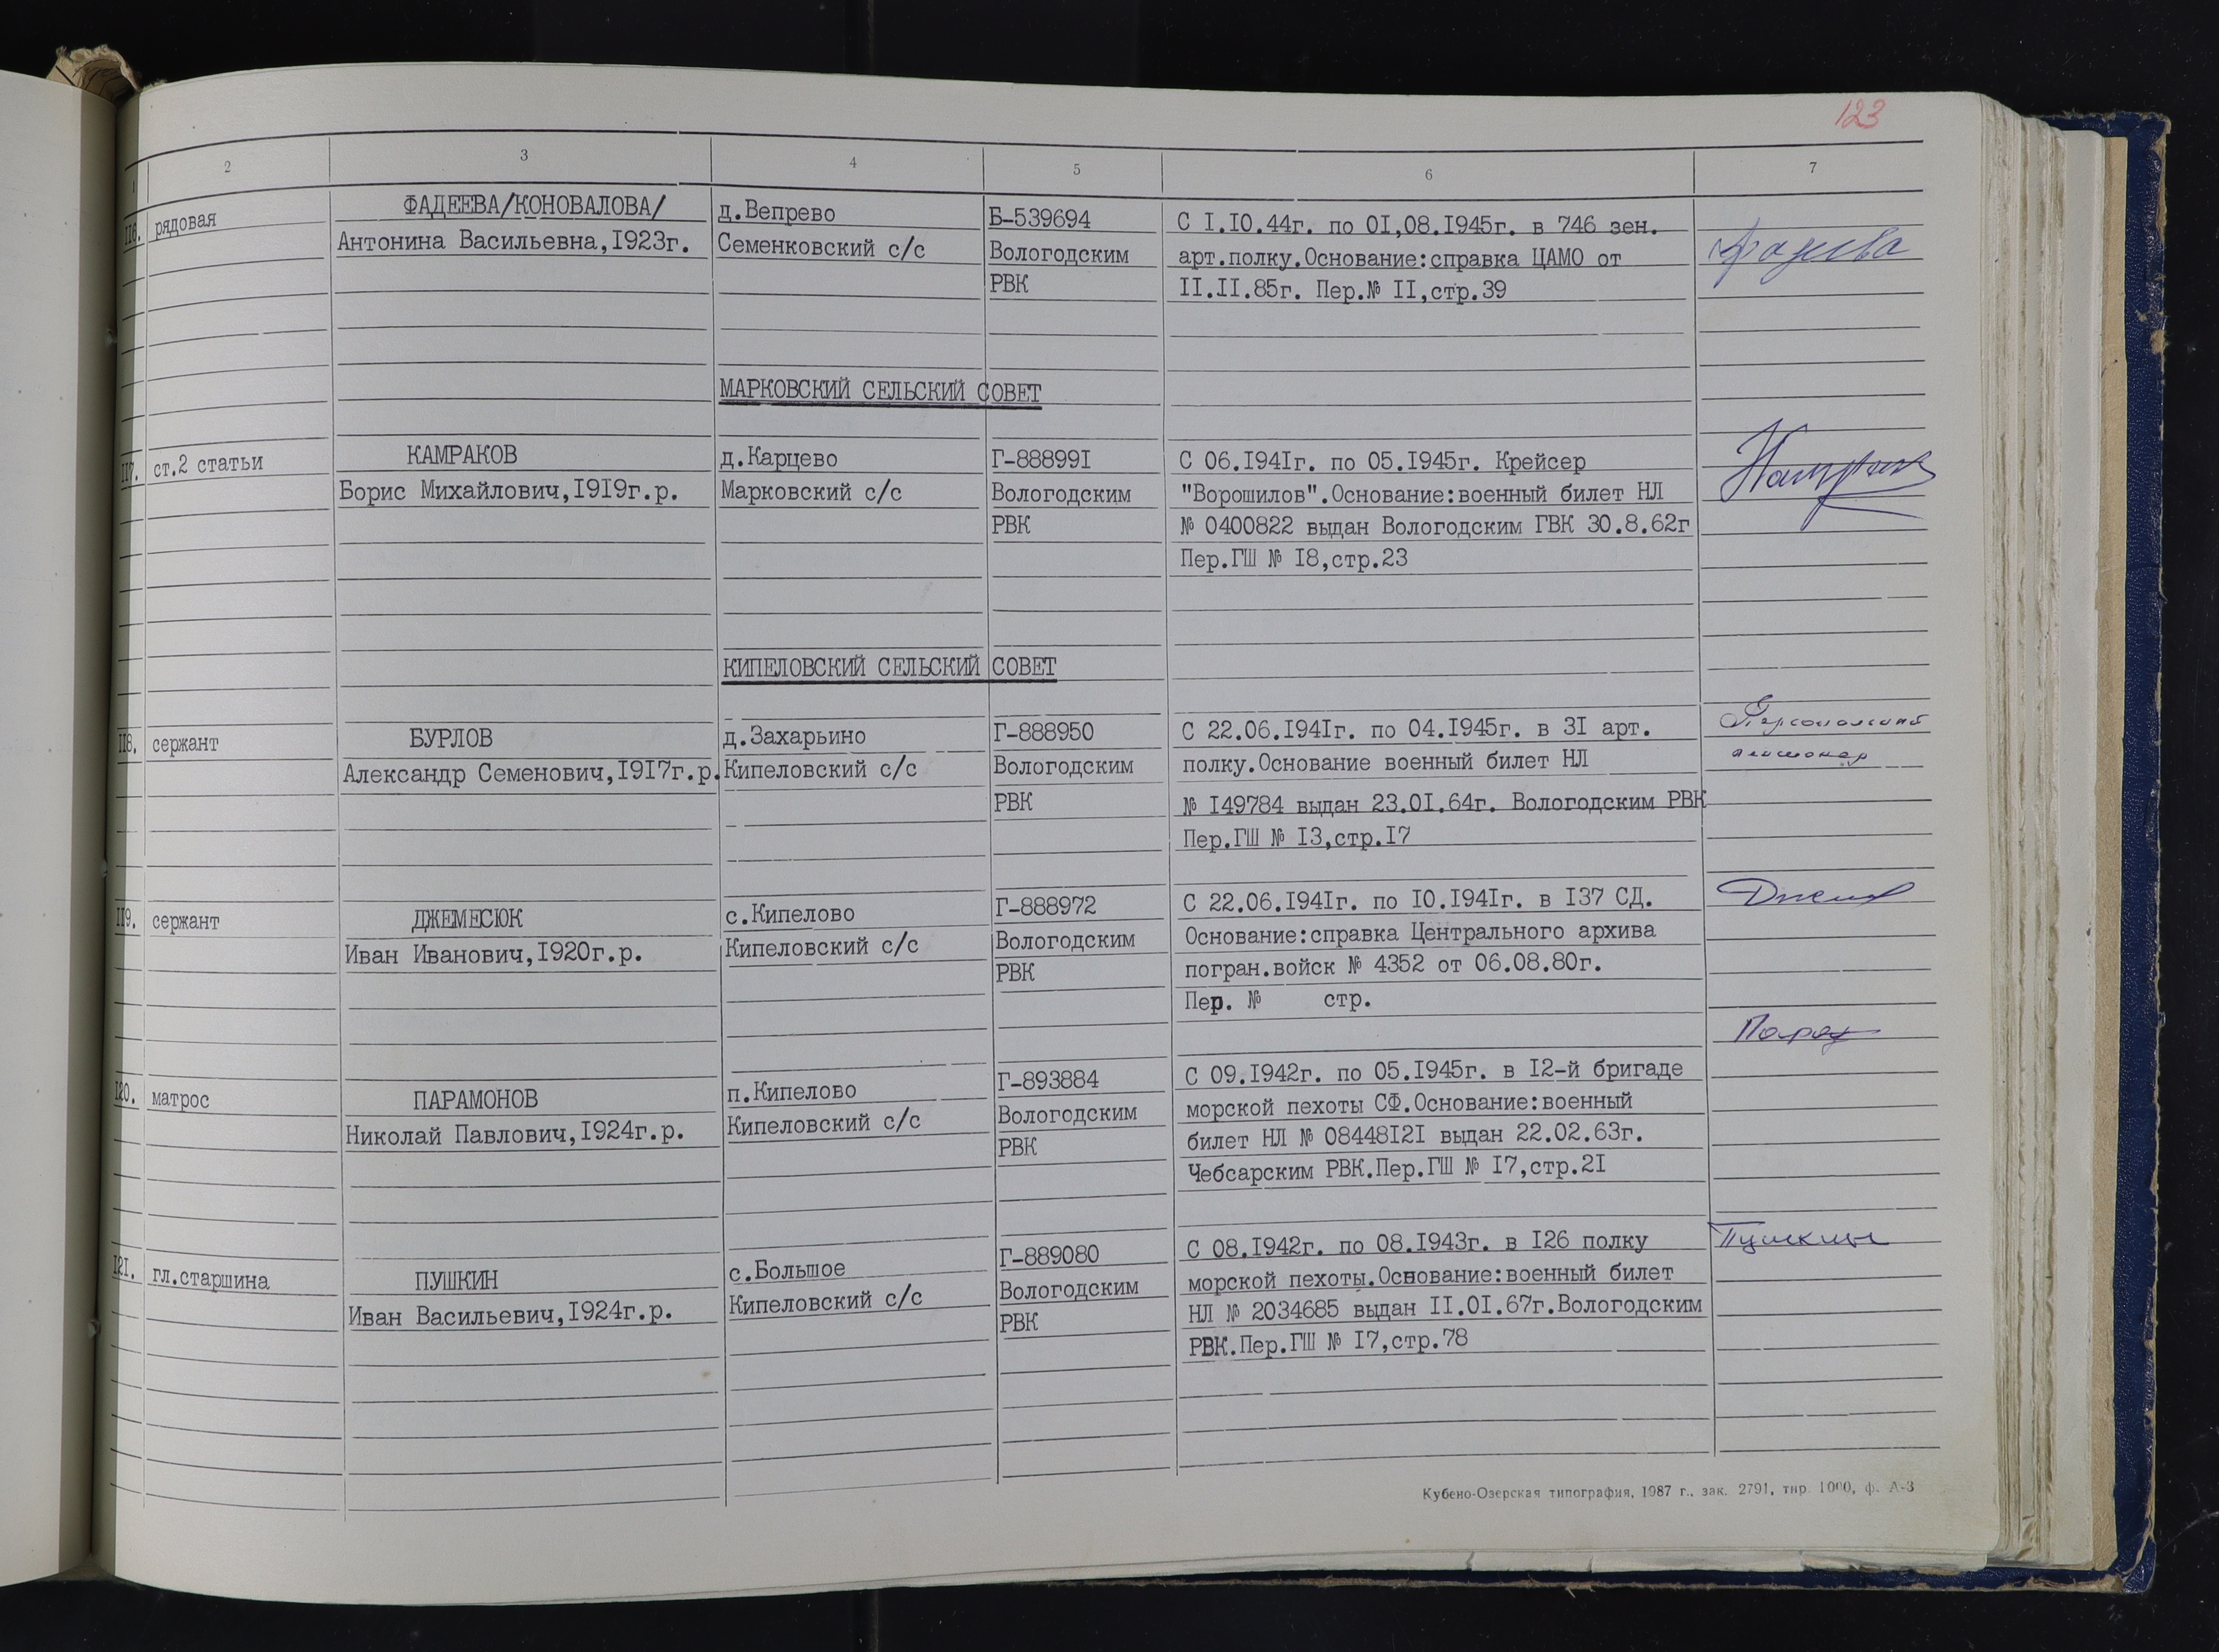 123
1 2 3 4 5 6 7
116. рядовая
ФАДЕЕВА/КОНОВАЛОВА/
Антонина Васильевна,I923г.
д.Вепрево
Семенковский с/с
Б-539694
Вологодским
РВК
С I.IO.44г. по OI,08.I945г. в 746 зен.
арт.полку.Основание:справка ЦАМО от
II.II.85г. Пер.№ II,стр.39
Фадеева
МАРКОВСКИЙ СЕЛЬСКИЙ СОВЕТ
II7. ст.2 статьи
КАМРАКОВ
Борис Михайлович,I9I9г.р.
д.Карцево
Марковский с/с
Г-88899I
Вологодским
РВК
С 06.I94Iг. по 05.I945г. Крейсер
"Ворошилов".Основание:военный билет НЛ
№ 0400822 выдан Вологодским ГВК 30.8.62г
Пер.ГШ № I8,стр.23
КИПЕЛОВСКИЙ СЕЛЬСКИЙ СОВЕТ
II8. сержант
БУРЛОВ
Александр Семенович,I9I7г.р.
д.Захарьино
Кипеловский с/с
Г-888950
Вологодским
РВК
С 22.06.I94Iг. по 04.I945г. в 3I арт.
полку.Основание военный билет НЛ
№ I49784 выдан 23.OI.64г. Вологодским РВК
Пер.ГШ № I3,стр.I7
Персональный
пенсионер
II9. сержант
ДЖЕМЕСЮК
Иван Иванович,I920г.р.
с.Кипелово
Кипеловский с/с
Г-888972
Вологодским
РВК
С 22.06.I94Iг. по IO.I94Iг. в I37 СД.
Основание:справка Центрального архива
погран.войск № 4352 от 06.08.80г.
Пер. № стр.
I20. матрос
ПАРАМОНОВ
Николай Павлович,I924г.р.
п.Кипелово
Кипеловский с/с
Г-893884
Вологодским
РВК
С 09.I942г. по 05.I945г. в I2-й бригаде
морской пехоты СФ.Основание:военный
билет НЛ № 08448I2I выдан 22.02.63г.
Чебсарским РВК.Пер.ГШ № I7,стр.2I
I2I. гл.старшина
ПУШКИН
Иван Васильевич,I924г.р.
с.Большое
Кипеловский с/с
Г-889080
Вологодским
РВК
С 08.I942г. по 08.I943г. в I26 полку
морской пехоты.Основание:военный билет
НЛ № 2034685 выдан II.OI.67г.Вологодским
РВК.Пер.ГШ № I7,стр.78
Пушкин
Кубено-Озерская типография, 1987 г., зак. 2791, тир. 1000, ф. А-3